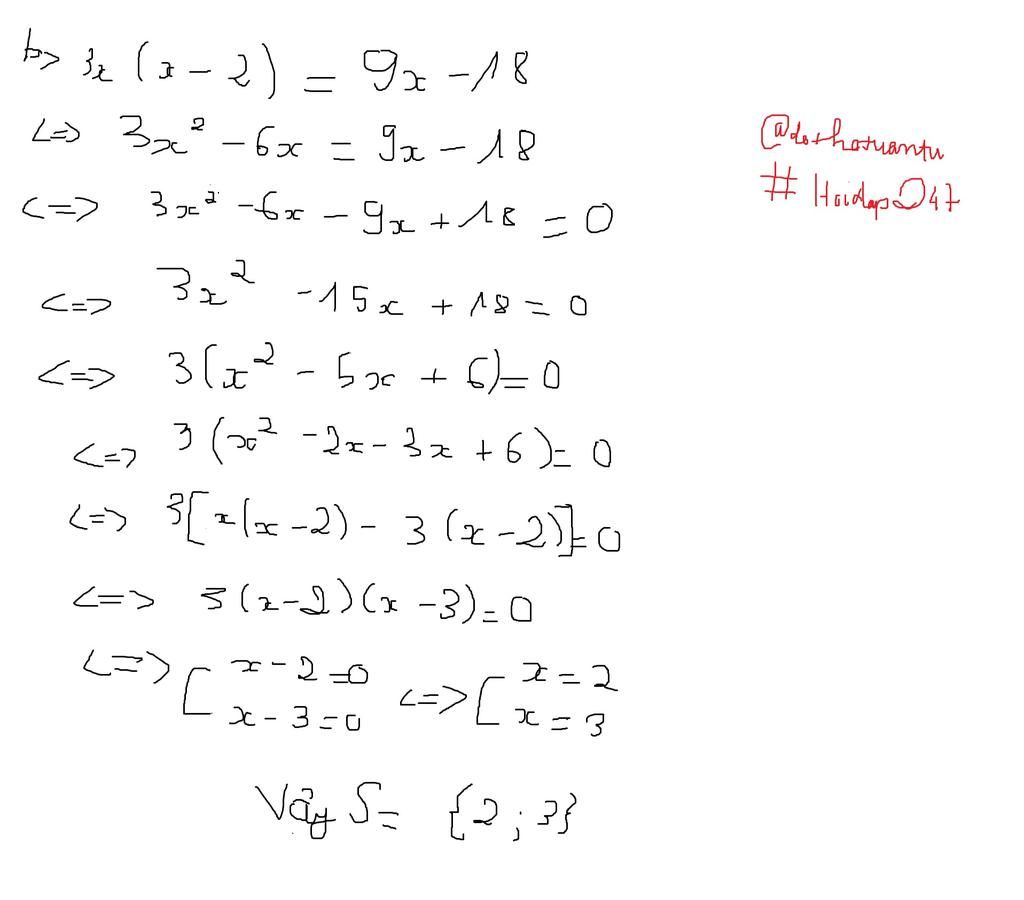 b> 3x (x - 2) = 9x - 18
<=> 3x² - 6x = 9x - 18
<=> 3x² - 6x - 9x + 18 = 0
<=> 3x² - 15x + 18 = 0
<=> 3(x² - 5x + 6) = 0
<=> 3(x² - 2x - 3x + 6) = 0
<=> 3[x(x - 2) - 3(x - 2)] = 0
<=> 3(x - 2)(x - 3) = 0
<=> [ x - 2 = 0 <=> [ x = 2
x - 3 = 0 x = 3
Vậy S = {2 ; 3}
# Hoidap247